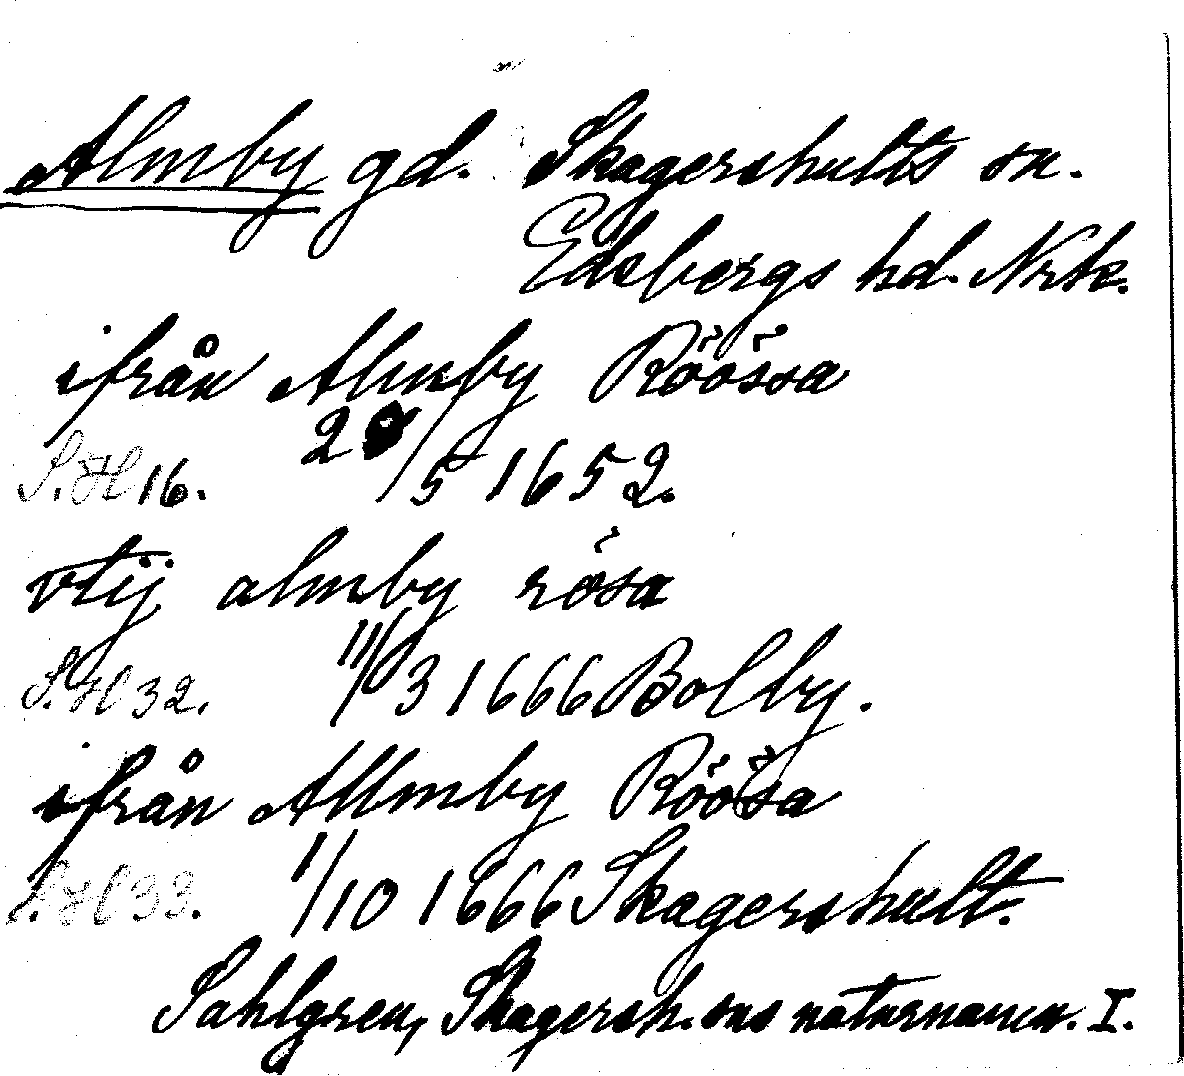 Almby gd. Skagershults sn.
Edsbergs hd. Nrk.
ifrån Almby Röössa
S.H 16. 20/5 1652.
vtij almby rösa
S.H 32. 11/3 1666 Bolby.
ifrån Allmby Röösa
S.H 33. 1/10 1666 Skagershult.
Sahlgren, Skagersh. sns naturnamn. I.